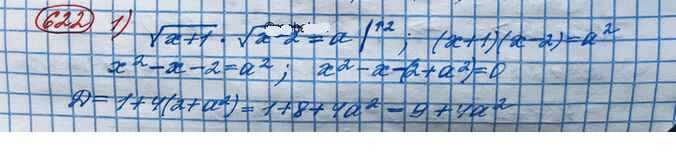 622 1) √x+1 · √x-2 = a |↑2 ; (x+1)(x-2)=a²
x²-x-2=a² ; x²-x-(2+a²)=0
D=1+4(2+a²)=1+8+4a²=9+4a²